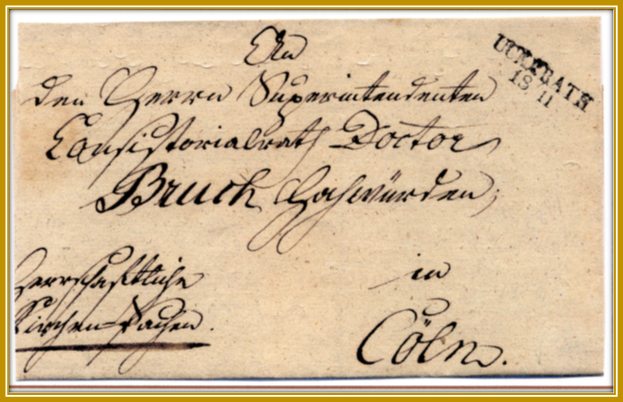 An
den Herrn Superintendenten
Consistorialrath Doctor
Bruch Hochwürden,
in
Cöln.
Herrschaftliche
Kirchen-Sachen.
UCKERATH
18 11